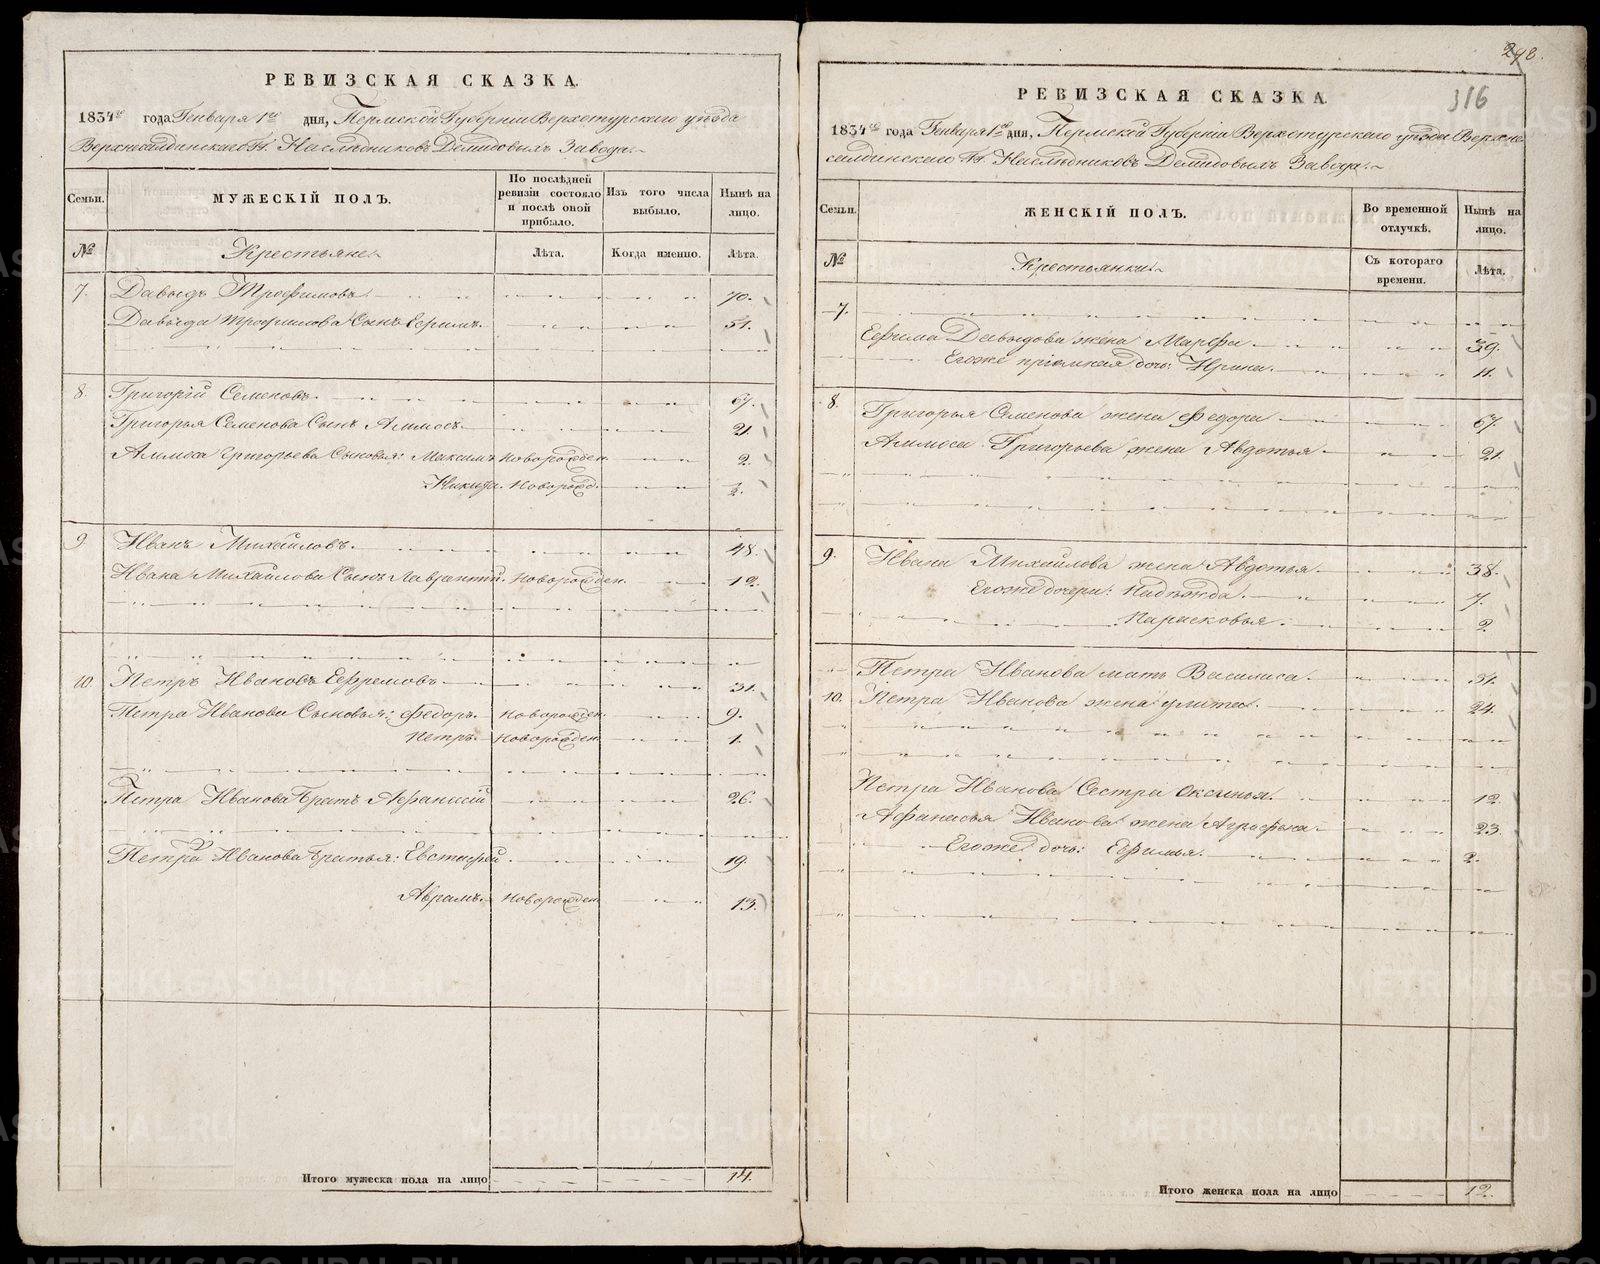 РЕВИЗСКАЯ СКАЗКА.
1834го года Генваря 1го дня, Пермской Губернiи Верхотурскаго уѣзда
Верхнесалдинскаго Гг. Наслѣдниковъ Демидовыхъ Завода.
Семьи.
МУЖЕСКIЙ ПОЛЪ.
По послѣдней ревизiи состояло и послѣ оной прибыло.
Изъ того числа выбыло.
Нынѣ на лицо.
№
Крестьяне.
Лѣта.
Когда именно.
Лѣта.
7. Давыдъ Трофимовъ. 70.
Давыда Трофимова Сынъ Ефимъ. 51.
8. Григорiй Семеновъ. 67.
Григорья Семенова Сынъ Аммосъ. 21.
Аммоса Григорьева Сыновья: Максимъ Новорожден. 2.
Никита. Новорожд. ½.
9. Иванъ Михайловъ. 48.
Ивана Михайлова Сынъ Лаврентiй. Новорожден. 12.
10. Петръ Ивановъ Ефремовъ. 31.
Петра Иванова Сыновья: Федоръ. Новорожден. 9.
Петръ. Новорожден. 1.
Петра Иванова братъ Афанасiй 26.
Петра Иванова братья: Евстафей. 19.
Аврамъ. Новорожден. 13.
Итого мужеска пола на лицо 14.
298.
316
РЕВИЗСКАЯ СКАЗКА.
1834го года Генваря 1го дня, Пермской Губернiи Верхотурскаго уѣзда Верхне
салдинскаго Гг. Наслѣдниковъ Демидовыхъ Завода.
Семьи.
ЖЕНСКIЙ ПОЛЪ.
Во временной отлучкѣ.
Нынѣ на лицо.
№
Крестьянки.
Съ котораго времени.
Лѣта.
7.
Ефима Давыдова жена Марфа. 39.
Егоже прiемная дочь: Ирина. 11.
8. Григорья Семенова жена Федора 67.
Аммоса Григорьева жена Авдотья. 21.
9. Ивана Михайлова жена Авдотья. 38.
Егоже дочери: Надѣжда. 7.
Парасковья. 2.
Петра Иванова мать Василиса. 51.
10. Петра Иванова жена Улита. 24.
Петра Иванова Сестра Оксинья. 12.
Афанасья Иванова жена Аграфена. 23.
Егоже дочь: Ефимья. 2.
Итого женска пола на лицо 12.
METRIKI.GASO-URAL.RU